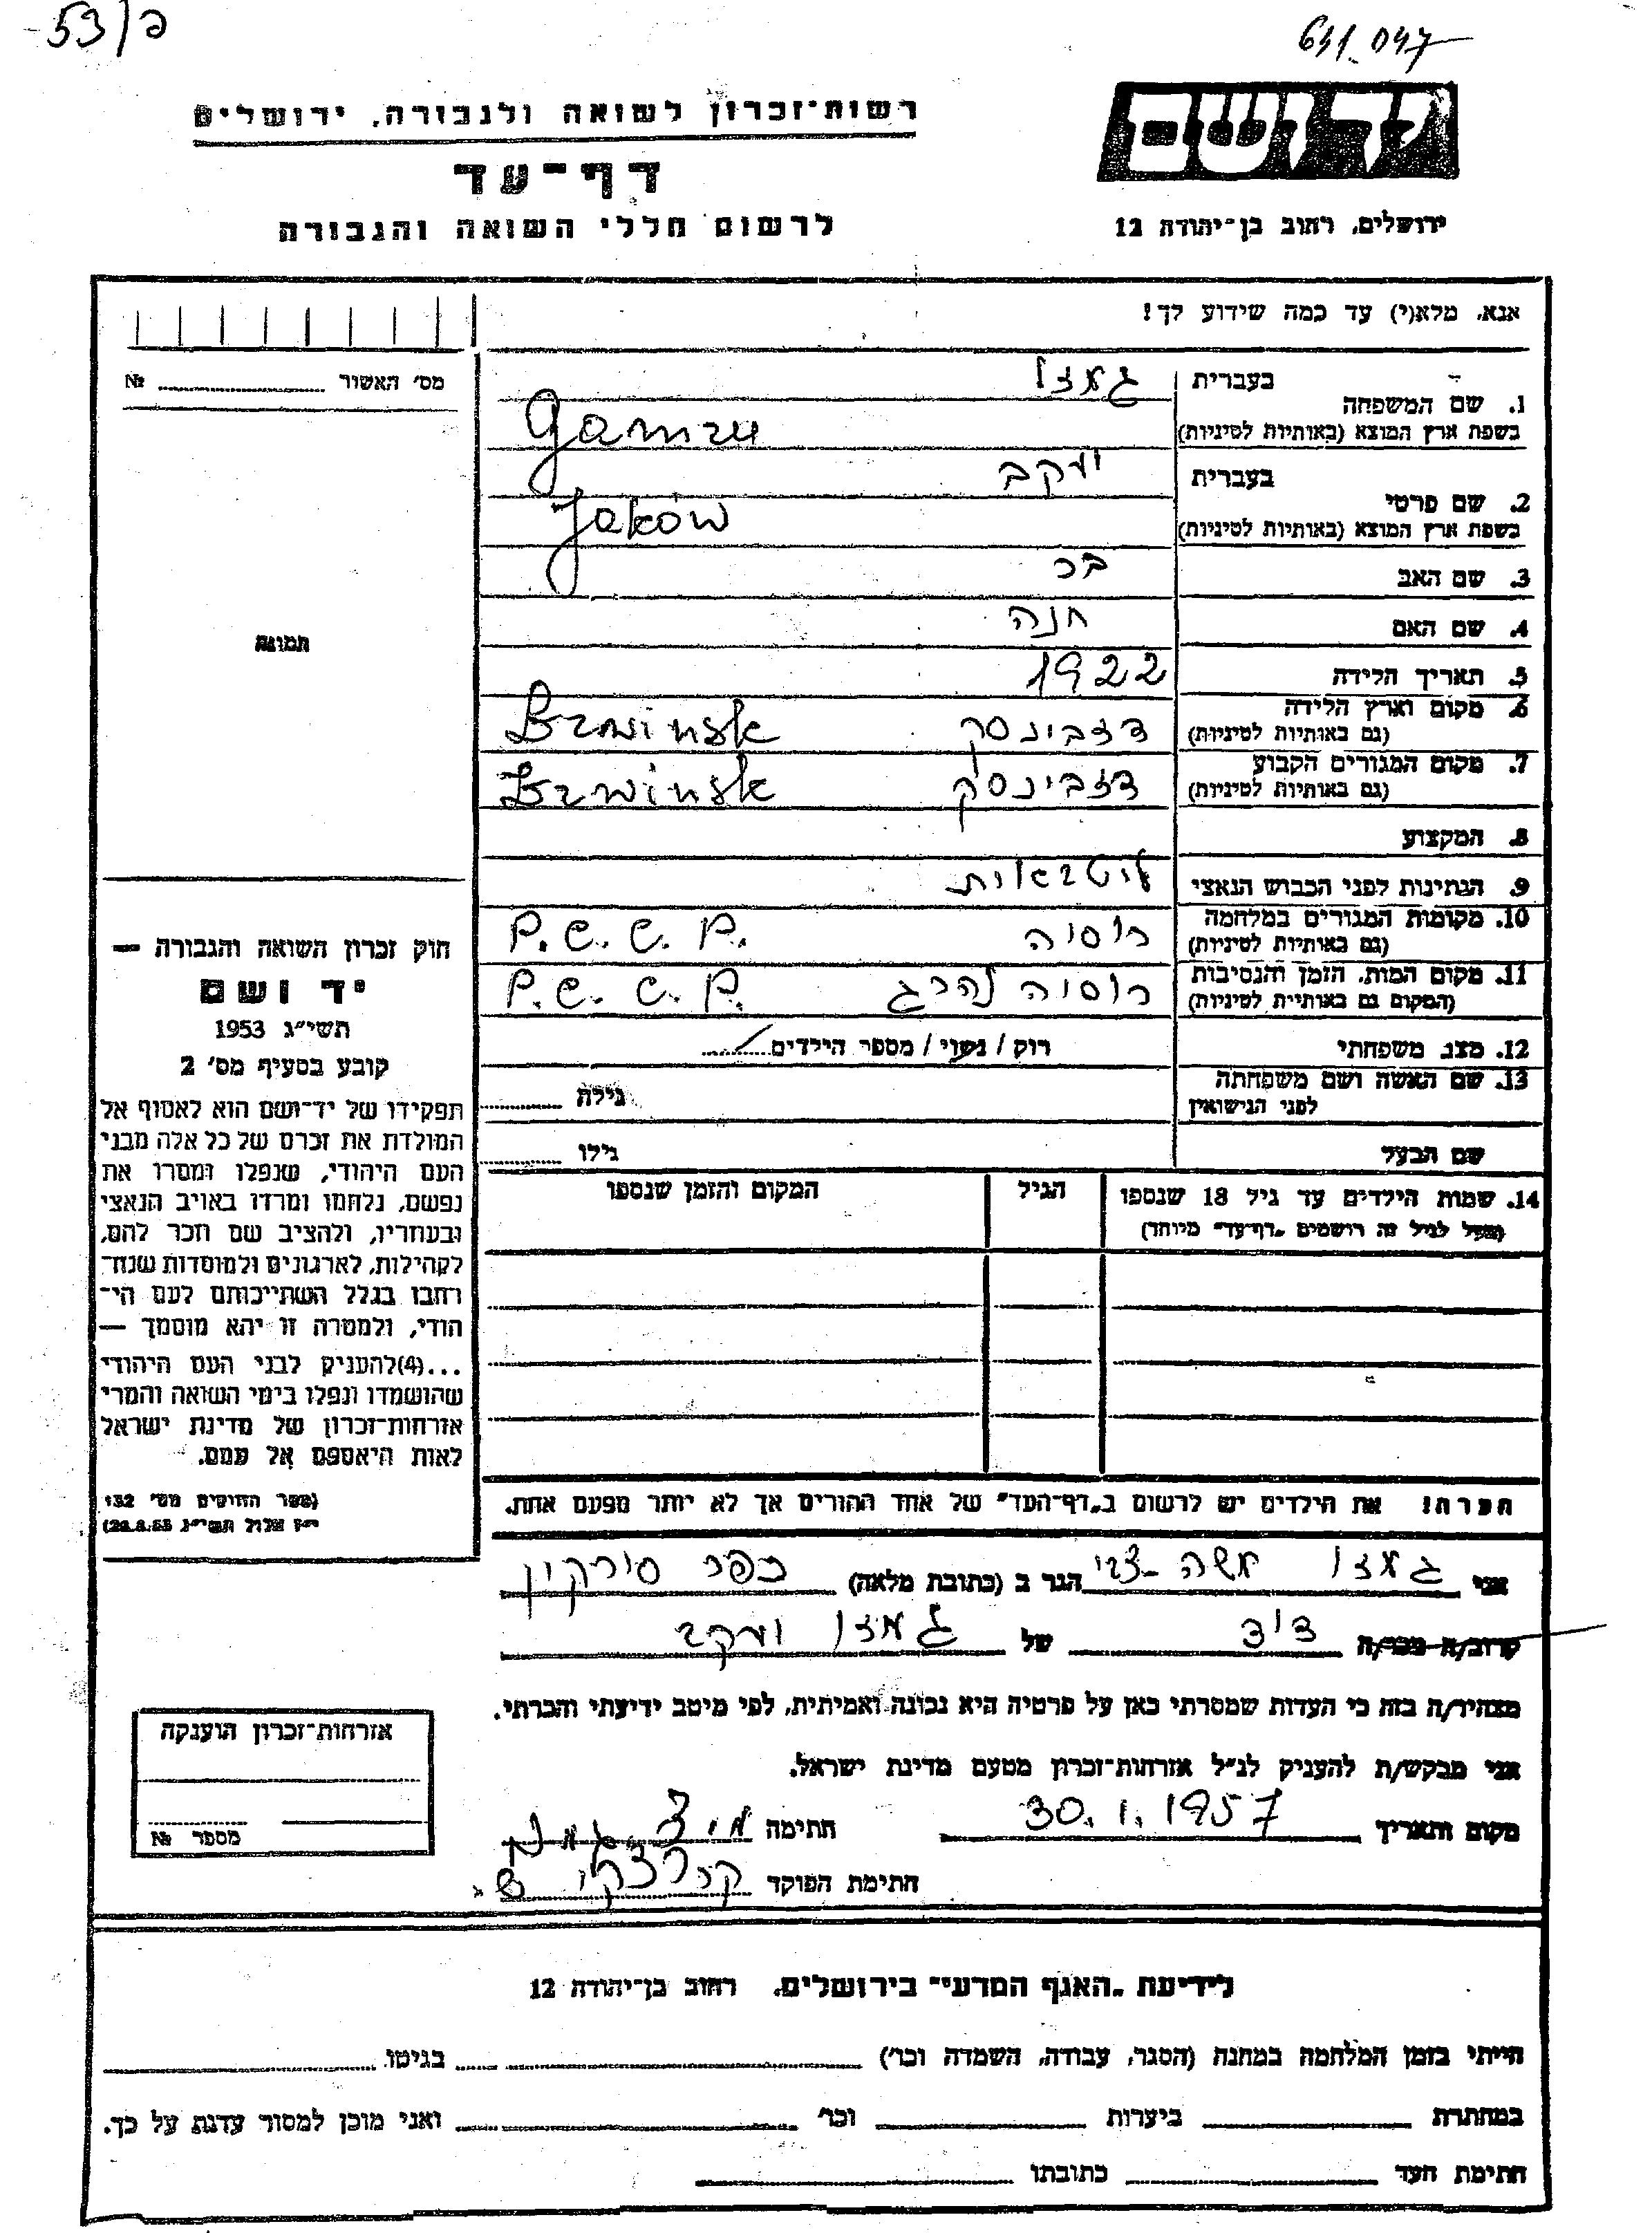 53/פ
641.047
רשות־זכרון לשואה ולגבורה, ירושלים
יד ושם
דף־עד
לרשום חללי השואה והגבורה
ירושלים, רחוב בן־יהודה 12
אנא, מלא(י) עד כמה שידוע לך!
מס׳ האשור № 
1. שם המשפחה בעברית גמזו
בשפת ארץ המוצא (באותיות לטיניות) Gamzu
2. שם פרטי בעברית יעקב
בשפת ארץ המוצא (באותיות לטיניות) Jaków
3. שם האב
4. שם האם חנה
5. תאריך הלידה 1922
6. מקום וארץ הלידה (גם באותיות לטיניות) דזבינסק
7. מקום המגורים הקבוע (גם באותיות לטיניות) דזבינסק
8. המקצוע
9. הנתינות לפני הכבוש הנאצי
10. מקומות המגורים במלחמה (גם באותיות לטיניות) רוסיה P.C.C.P.
11. מקום המות, הזמן והנסיבות (המקום גם באותיות לטיניות) רוסיה נהרג P.C.C.P.
12. מצב משפחתי רוק / נשוי / מספר הילדים
13. שם האשה ושם משפחתה לפני הנישואין גילה
שם הבעל גילו
14. שמות הילדים עד גיל 18 שנספו הגיל המקום והזמן שנספו
(מעל לגיל זה רושמים „דף־עד״ מיוחד)
תמונה
חוק זכרון השואה והגבורה —
יד ושם
תשי״ג 1953
קובע בסעיף מס׳ 2
תפקידו של יד־ושם הוא לאסוף אל
המולדת את זכרם של כל אלה מבני
העם היהודי, שנפלו ומסרו את
נפשם, נלחמו ומרדו באויב הנאצי
ובעוזריו, ולהציב שם וזכר להם,
לקהילות, לארגונים ולמוסדות שנח־
רבו בגלל השתייכותם לעם הי־
הודי, ולמטרה זו יהא מוסמך —
...(4)להעניק לבני העם היהודי
שהושמדו ונפלו בימי השואה והמרי
אזרחות־זכרון של מדינת ישראל
לאות היאספם אל עמם.
(ספר החוקים מס׳ 132
י״ז אלול תשי״ג 28.8.53)
הערה! את הילדים יש לרשום ב„דף־העד״ של אחד ההורים אך לא יותר מפעם אחת.
אני גמזו משה-צבי הגר ב (כתובת מלאה) כפר סירקין
קרוב/ה מכר/ה דוד של גמזו יעקב
מצהיר/ה בזה כי העדות שמסרתי כאן על פרטיה היא נכונה ואמיתית, לפי מיטב ידיעתי והכרתי.
אני מבקש/ת להעניק לנ״ל אזרחות־זכרון מטעם מדינת ישראל.
מקום ותאריך 30.1.1957 חתימה
חתימת הפוקד
אזרחות־זכרון הוענקה
מספר №
לידיעת „האגף המדעי״ בירושלים, רחוב בן־יהודה 12
הייתי בזמן המלחמה במחנה (הסגר, עבודה, השמדה וכר׳) בגיטו
במחתרת ביערות וכר׳ ואני מוכן למסור עדות על כך.
חתימת העד כתובתו